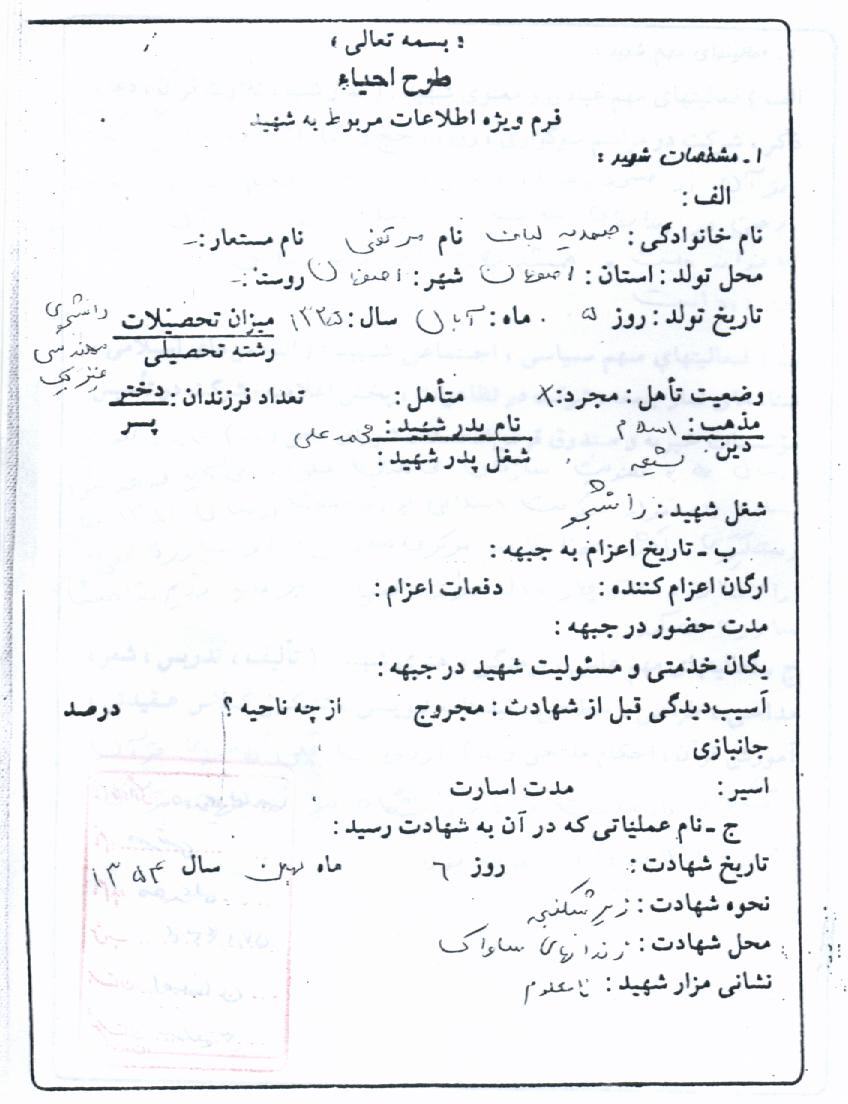 « بسمه تعالی »
طرح احیاء
فرم ویژه اطلاعات مربوط به شهید
۱ـ مشخصات شهید :
الف :
نام خانوادگی : صمدیه لباف نام مرتضی نام مستعار : ـ
محل تولد : استان : اصفهان شهر : اصفهان روستا : ـ
تاریخ تولد : روز ۵ ماه : آبان سال : ۱۳۲۵ میزان تحصیلات دانشجوی
رشته تحصیلی مهندسی
فیزیک
وضعیت تأهل : مجرد : X متأهل : تعداد فرزندان : دختر
پسر
مذهب : اسلام نام پدر شهید : محمد علی
دین شیعه شغل پدر شهید :
شغل شهید : دانشجو
ب ـ تاریخ اعزام به جبهه :
ارگان اعزام کننده : دفعات اعزام :
مدت حضور در جبهه :
یگان خدمتی و مسئولیت شهید در جبهه :
آسیب‌دیدگی قبل از شهادت : مجروح از چه ناحیه ؟ درصد
جانبازی
اسیر : مدت اسارت
ج ـ نام عملیاتی که در آن به شهادت رسید :
تاریخ شهادت : روز ۶ ماه بهمن سال ۱۳۵۴
نحوه شهادت : زیر شکنجه
محل شهادت : زندانهای ساواک
نشانی مزار شهید : نامعلوم